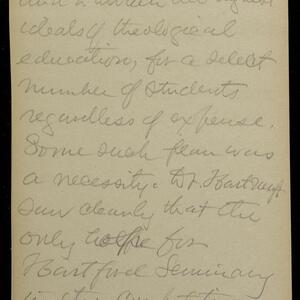 ideals of theological
education, for a select
number of students
regardless of expense.
Some such plan was
a necessity. Dr. Hartranft
saw clearly that the
only hope for
Hartford Seminary